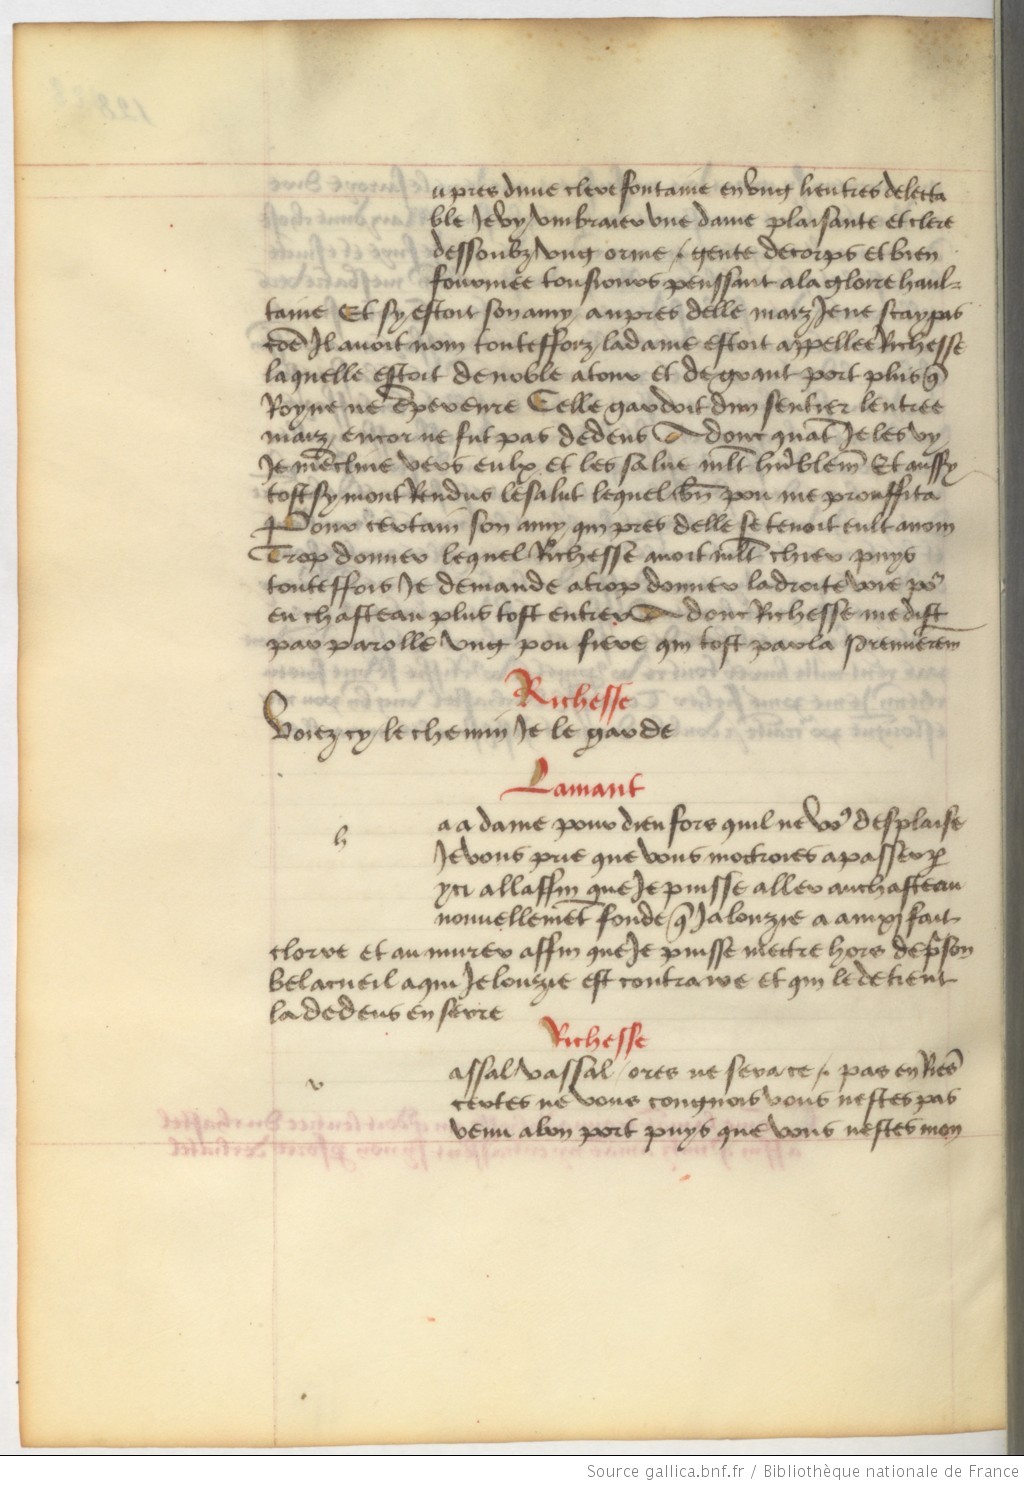 upres dune clere fontaine en ung lieu tres delecta
ble Je vy umbraier une dame plaisante et clere
dessoubz ung orme gente de corps et bien
fourniee tousiours penssant a la gloire haul=
taine Et sy estoit son amy aupres delle maiz Je ne scay pas
coē Il avoit nom touteffoiz la dame estoit appellee Richesse
laquelle estoit de noble atour et de grant port plus q̄
Royne ne Epereure Celle gardoit dun sentier lentree
maiz encor ne fut pas dedens Adonc quāt Je les vy
Je mēcline vers eulx et les salue mlt hūblem̄ Et aussy
tost sy mont Rendus le salut lequel bn̄ pou me prouffita
Pour certain son amy qui pres delle se tenoit eult a nom
Trop donner lequel Richesse avoit mlt chier puys
touteffois Je demande a trop donner la droite voie po'
en chasteau plus tost entrer Adonc Richesse me dist
par parolle ung pou fiere qui tost parla premierem̄
Richesse
Voiez cy le chemin Je le garde
Lamant
h
aa dame pour dieu fors quil ne vo' desplaise
Je vous prie que vous moctroies a passer p
yci allaffin que Je puisse aller au chasteau
nouvellemēt fonde q̄ Jalouzie a ainxi fait
clorre et au murer affin que Je puisse mectre hors de p̄son
belacueil a qui Jelouzie est contraire et qui le detient
la dedens en serre
Richesse
v
assal vassal ores ne sera ce pas en Riēs
certes ne vous congnois vous nestes pas
venu a bon port puys que vous nestes mon
Source gallica.bnf.fr / Bibliothèque nationale de France